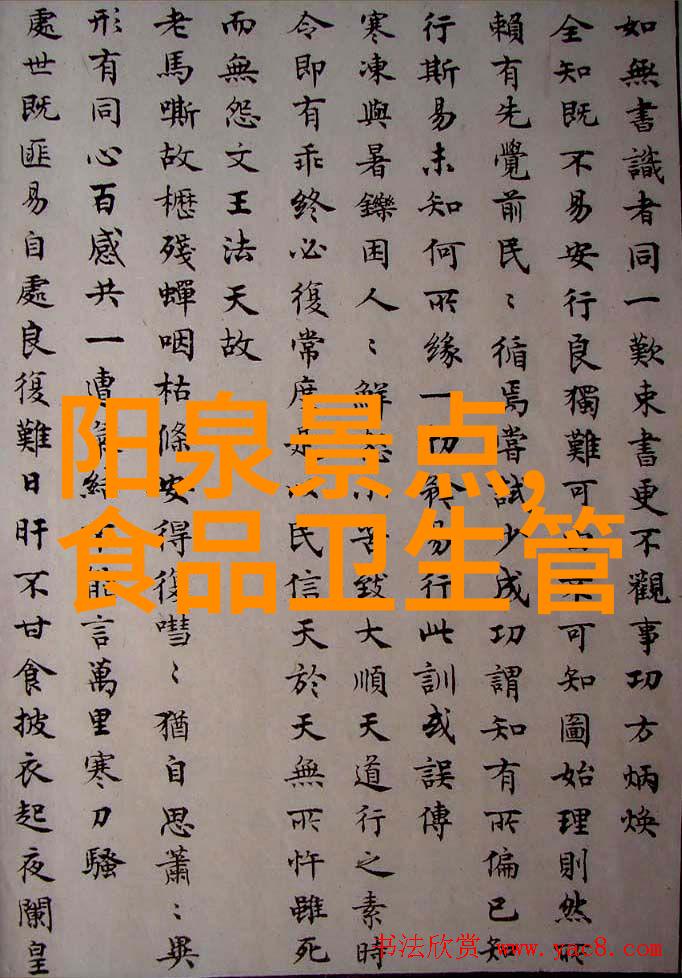 如無書識者同一歎束書更不觀事功方炳煥
全知既不易安行良獨難可 不可知圖始理則然所
賴有先覺前民〻循焉嘗試少成功謂知有所偏已知
行斯易未知何所緣一切 易行此訓或誤傳
寒凍與暑鑠困人〻鮮 小害致大順天道行之素時
令即有乖終必復常度是以民信天於天無所忤雖死
而無怨文王法天故
老馬嘶故櫪殘蟬咽枯條安得復嘒〻猶自思蕭〻異
形有同心百感共一遭氣結不能言萬里寒刀騷
處世既匪易自處良復難日旰不甘食披衣起夜闌皇
阳泉景点,
食品卫生管
书法欣赏 www.yac8.com